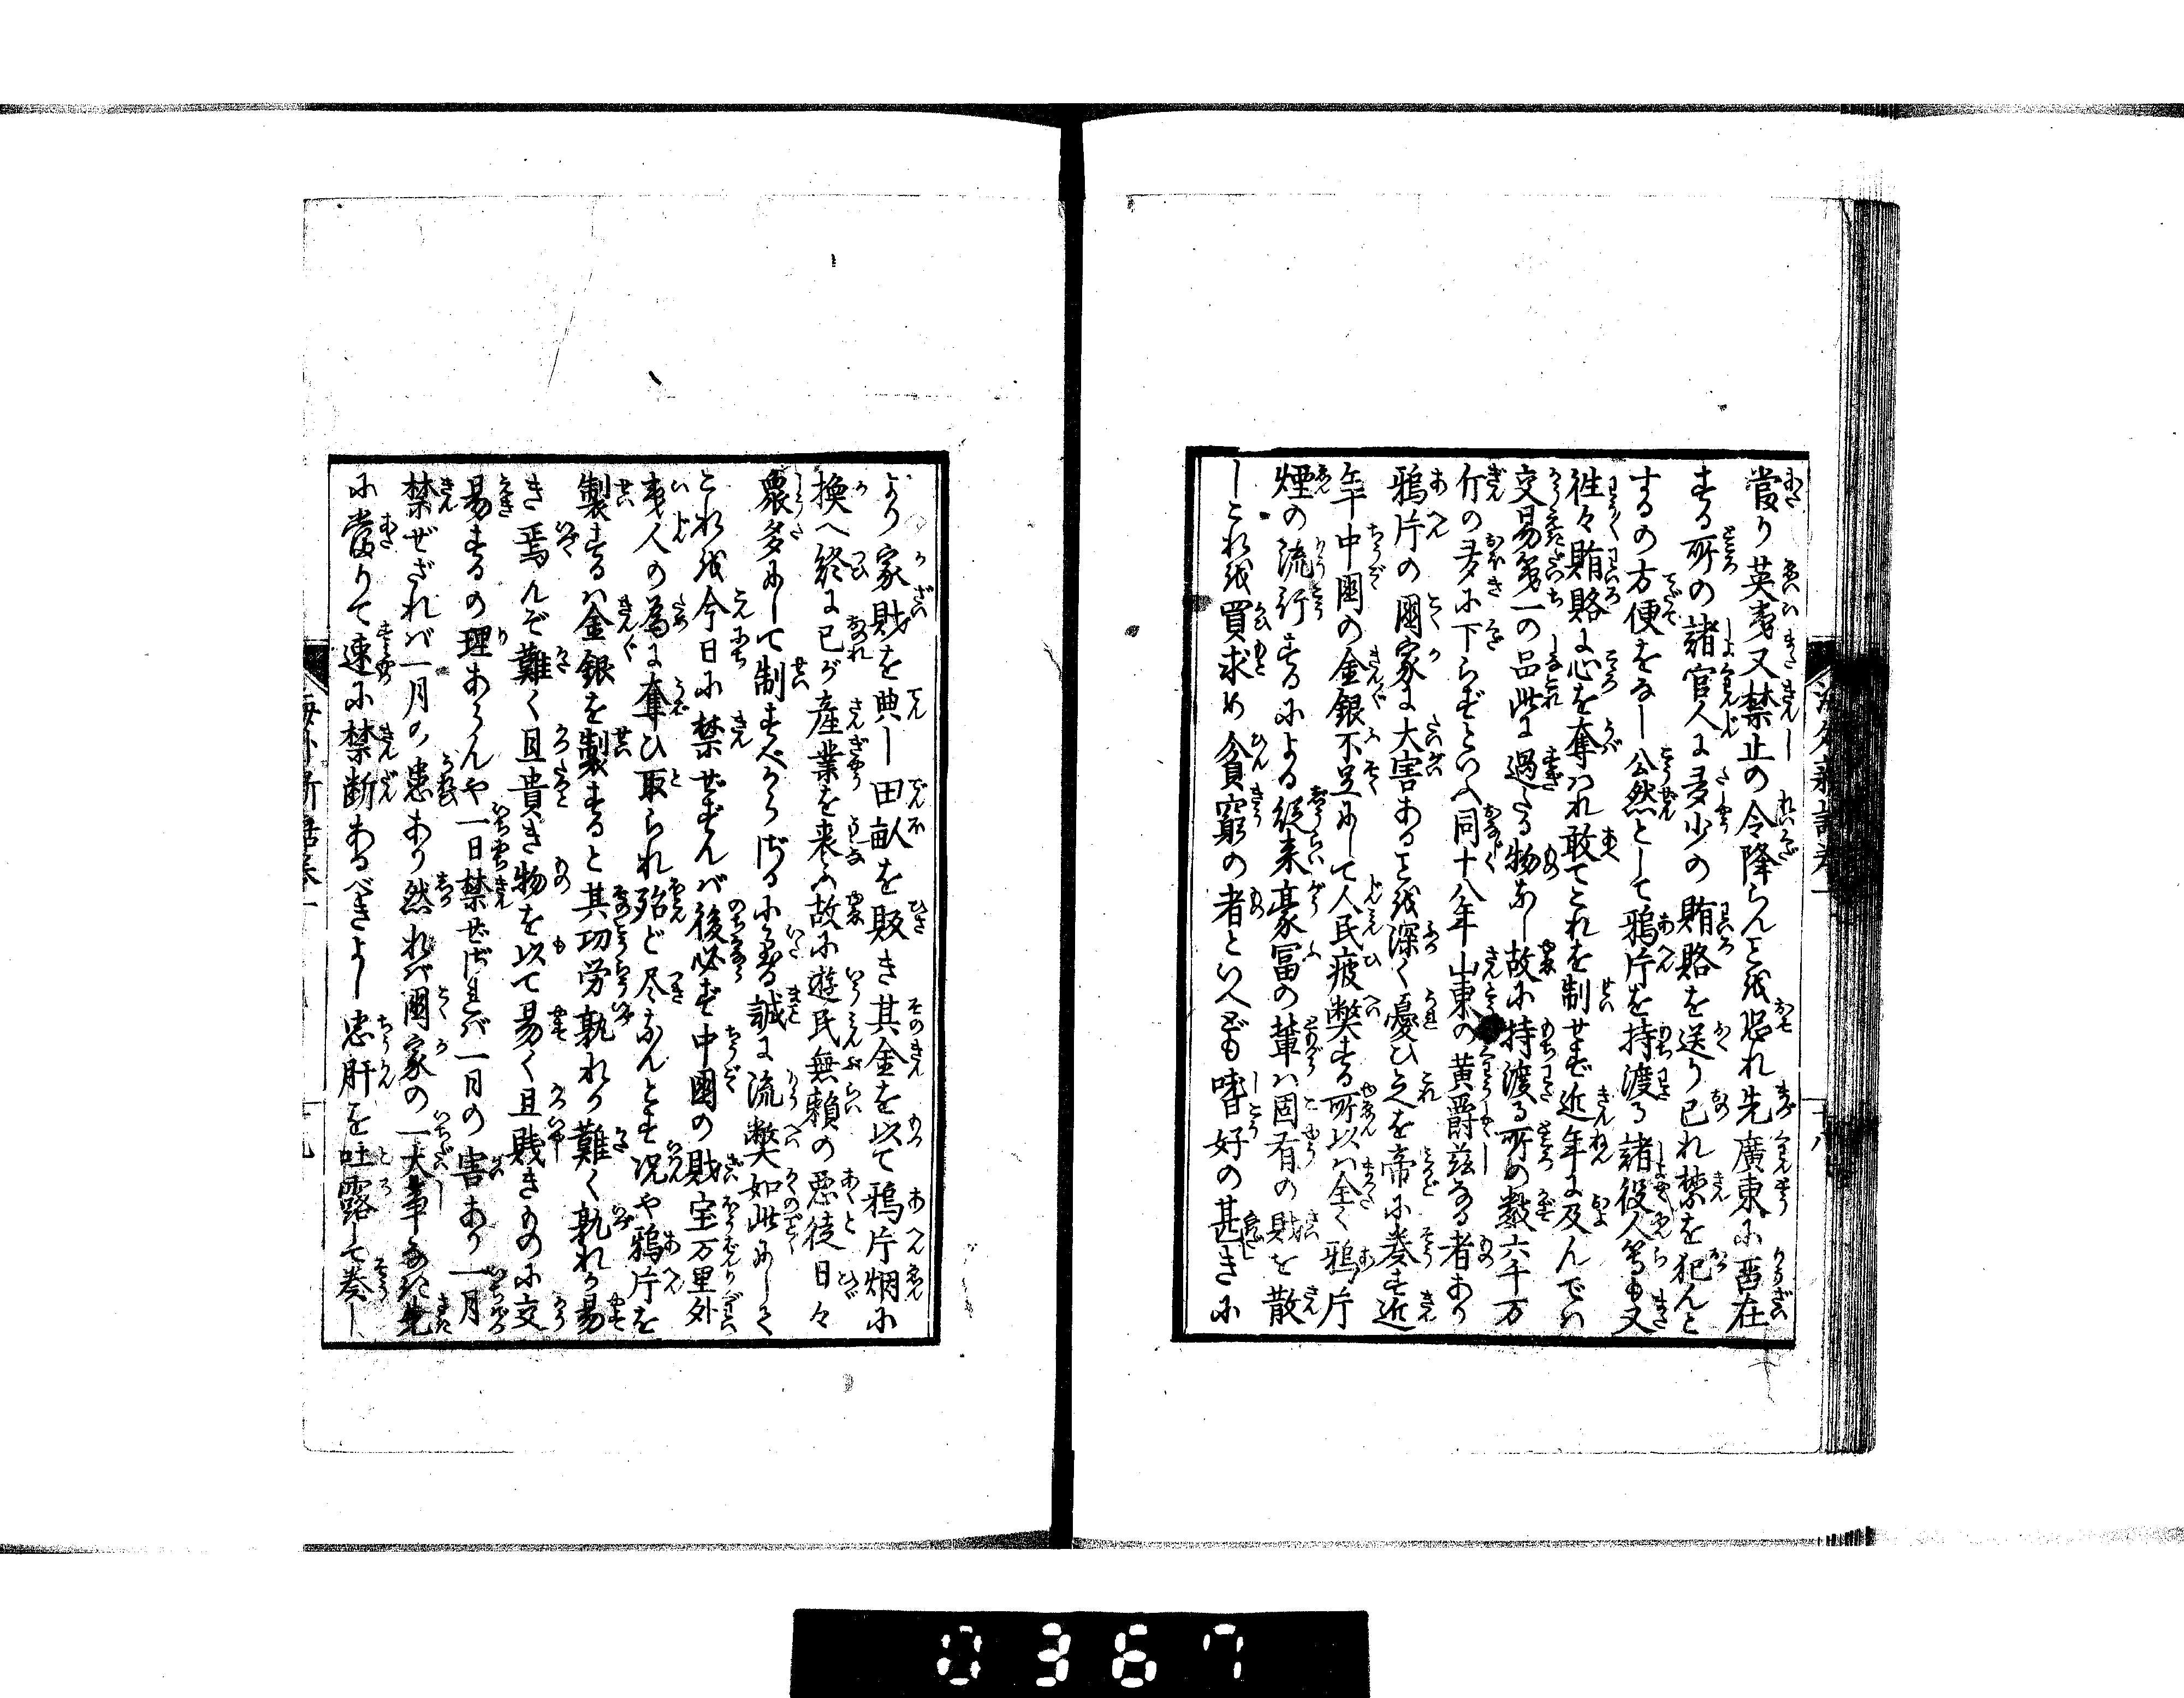 當り英夷又禁止の令降らんことを恐れ先廣東に畱在
する所の諸官人に多少の賄賂を送り己れ禁を犯んと
するの方便をなし公然として鴉片を持渡る諸役人等も又
徃々賄賂に心を奪はれ敢てこれを制せず近年に及んでは
交易第一の品此に過たる物なし故に持渡る所の数六千万
斤の多に下らずといふ同十八年山東の黄爵茲なる者あり
鴉片の國家に大害あることを深く憂ひ之を帝に奏す近
年中國の金銀不足にして人民疲弊する所以は全く鴉片
煙の流行するによる従来豪冨の輩は固有の財を散
しこれを買求め貧窮の者といへども嗜好の甚きに
より家財を典し田畝を販き其金を以て鴉片烟に
換へ終に己が産業を喪ふ故に遊民無頼の悪徒日々
衆多にして制すべからざるに至る誠に流弊如此にして
これを今日に禁ぜずんば後必ず中國の財宝万里外
夷人の為に奪ひ取られ殆ど尽なんとす况や鴉片を
製するは金銀を製すると其功労孰れか難く孰れか易
き焉んぞ難く且貴き物を以て易く且賎きものに交
易するの理あらんや一日禁ぜざれば一日の害あり一月
禁ぜざれば一月の患あり然れば國家の一大事なれば先
に當りて速に禁断あるべきよし忠肝を吐露して奏し
海外新話巻一
十八
海外新話巻一
十九
0367